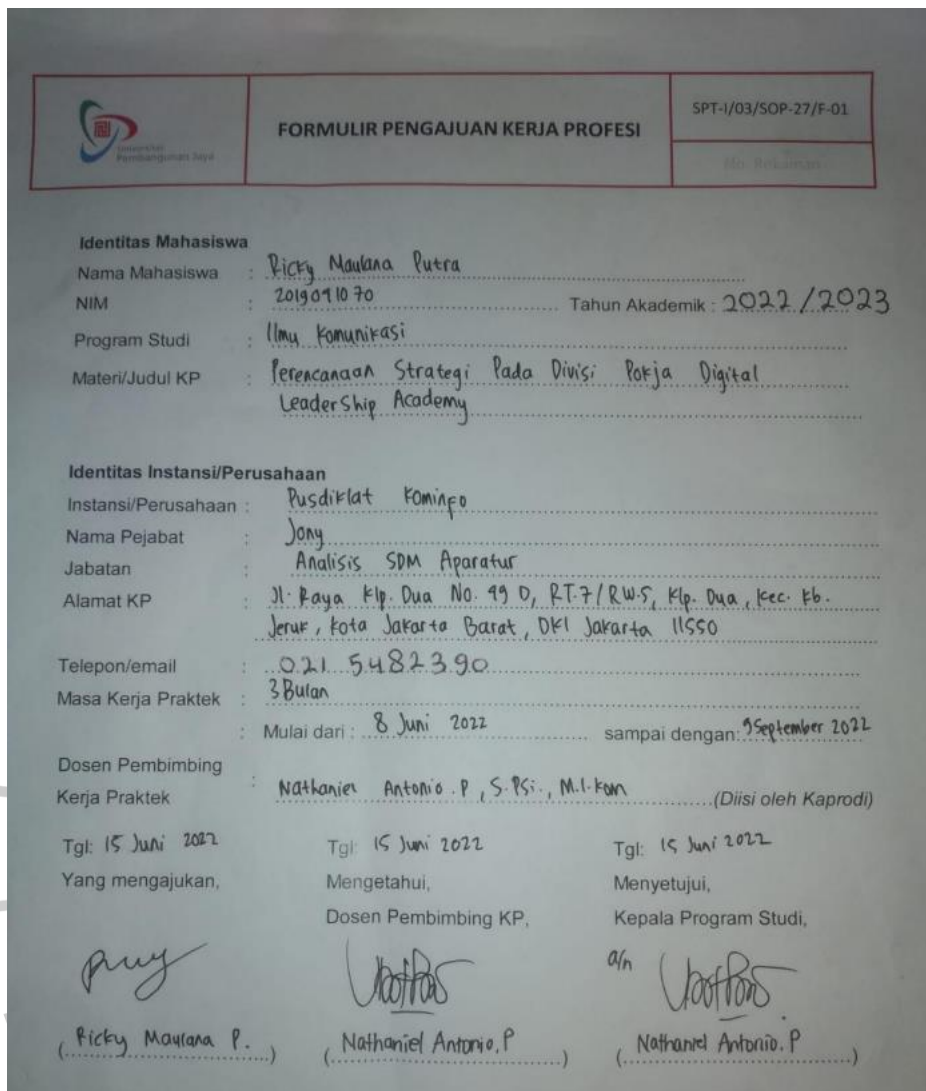 Universitas
Pembangunan Jaya
FORMULIR PENGAJUAN KERJA PROFESI
SPT-I/03/SOP-27/F-01
No. Rekaman
Identitas Mahasiswa
Nama Mahasiswa : Ricky Maulana Putra
NIM : 2019041070 Tahun Akademik : 2022/2023
Program Studi : Ilmu Komunikasi
Materi/Judul KP : Perencanaan Strategi Pada Divisi Pokja Digital
Leadership Academy
Identitas Instansi/Perusahaan
Instansi/Perusahaan : Pusdiklat Kominfo
Nama Pejabat : Jony
Jabatan : Analisis SDM Aparatur
Alamat KP : Jl. Raya Klp. Dua No. 49 D, RT.7/RW.5, Klp. Dua, Kec. Kb.
Jeruk, Kota Jakarta Barat, DKI Jakarta 11550
Telepon/email : 021 5482390
Masa Kerja Praktek : 3 Bulan
: Mulai dari : 8 Juni 2022 sampai dengan: 9 September 2022
Dosen Pembimbing
Kerja Praktek : Nathaniel Antonio .P, S.Psi., M.I.Kom (Diisi oleh Kaprodi)
Tgl: 15 Juni 2022 Tgl: 15 Juni 2022 Tgl: 15 Juni 2022
Yang mengajukan, Mengetahui, Menyetujui,
Dosen Pembimbing KP, Kepala Program Studi,
a/n
(Ricky Maulana P.) (Nathaniel Antonio.P) (Nathaniel Antonio.P)